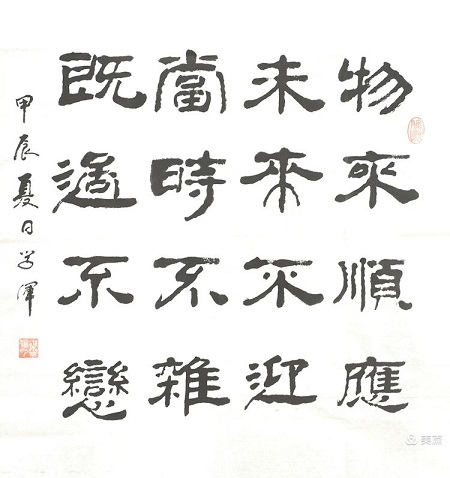 物來順應
未來不迎
當時不雜
既過不戀
甲辰夏日学
美篇